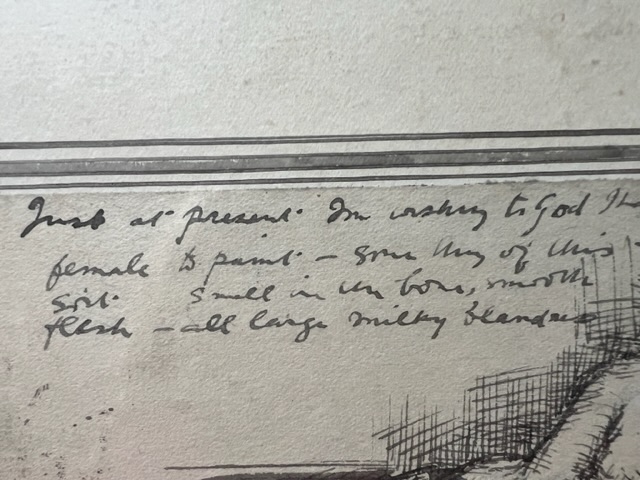 Just at present Im wishing to God I ha
female to paint – some thing of this
sort. small in the bone, smooth
flesh – all large milky blandness